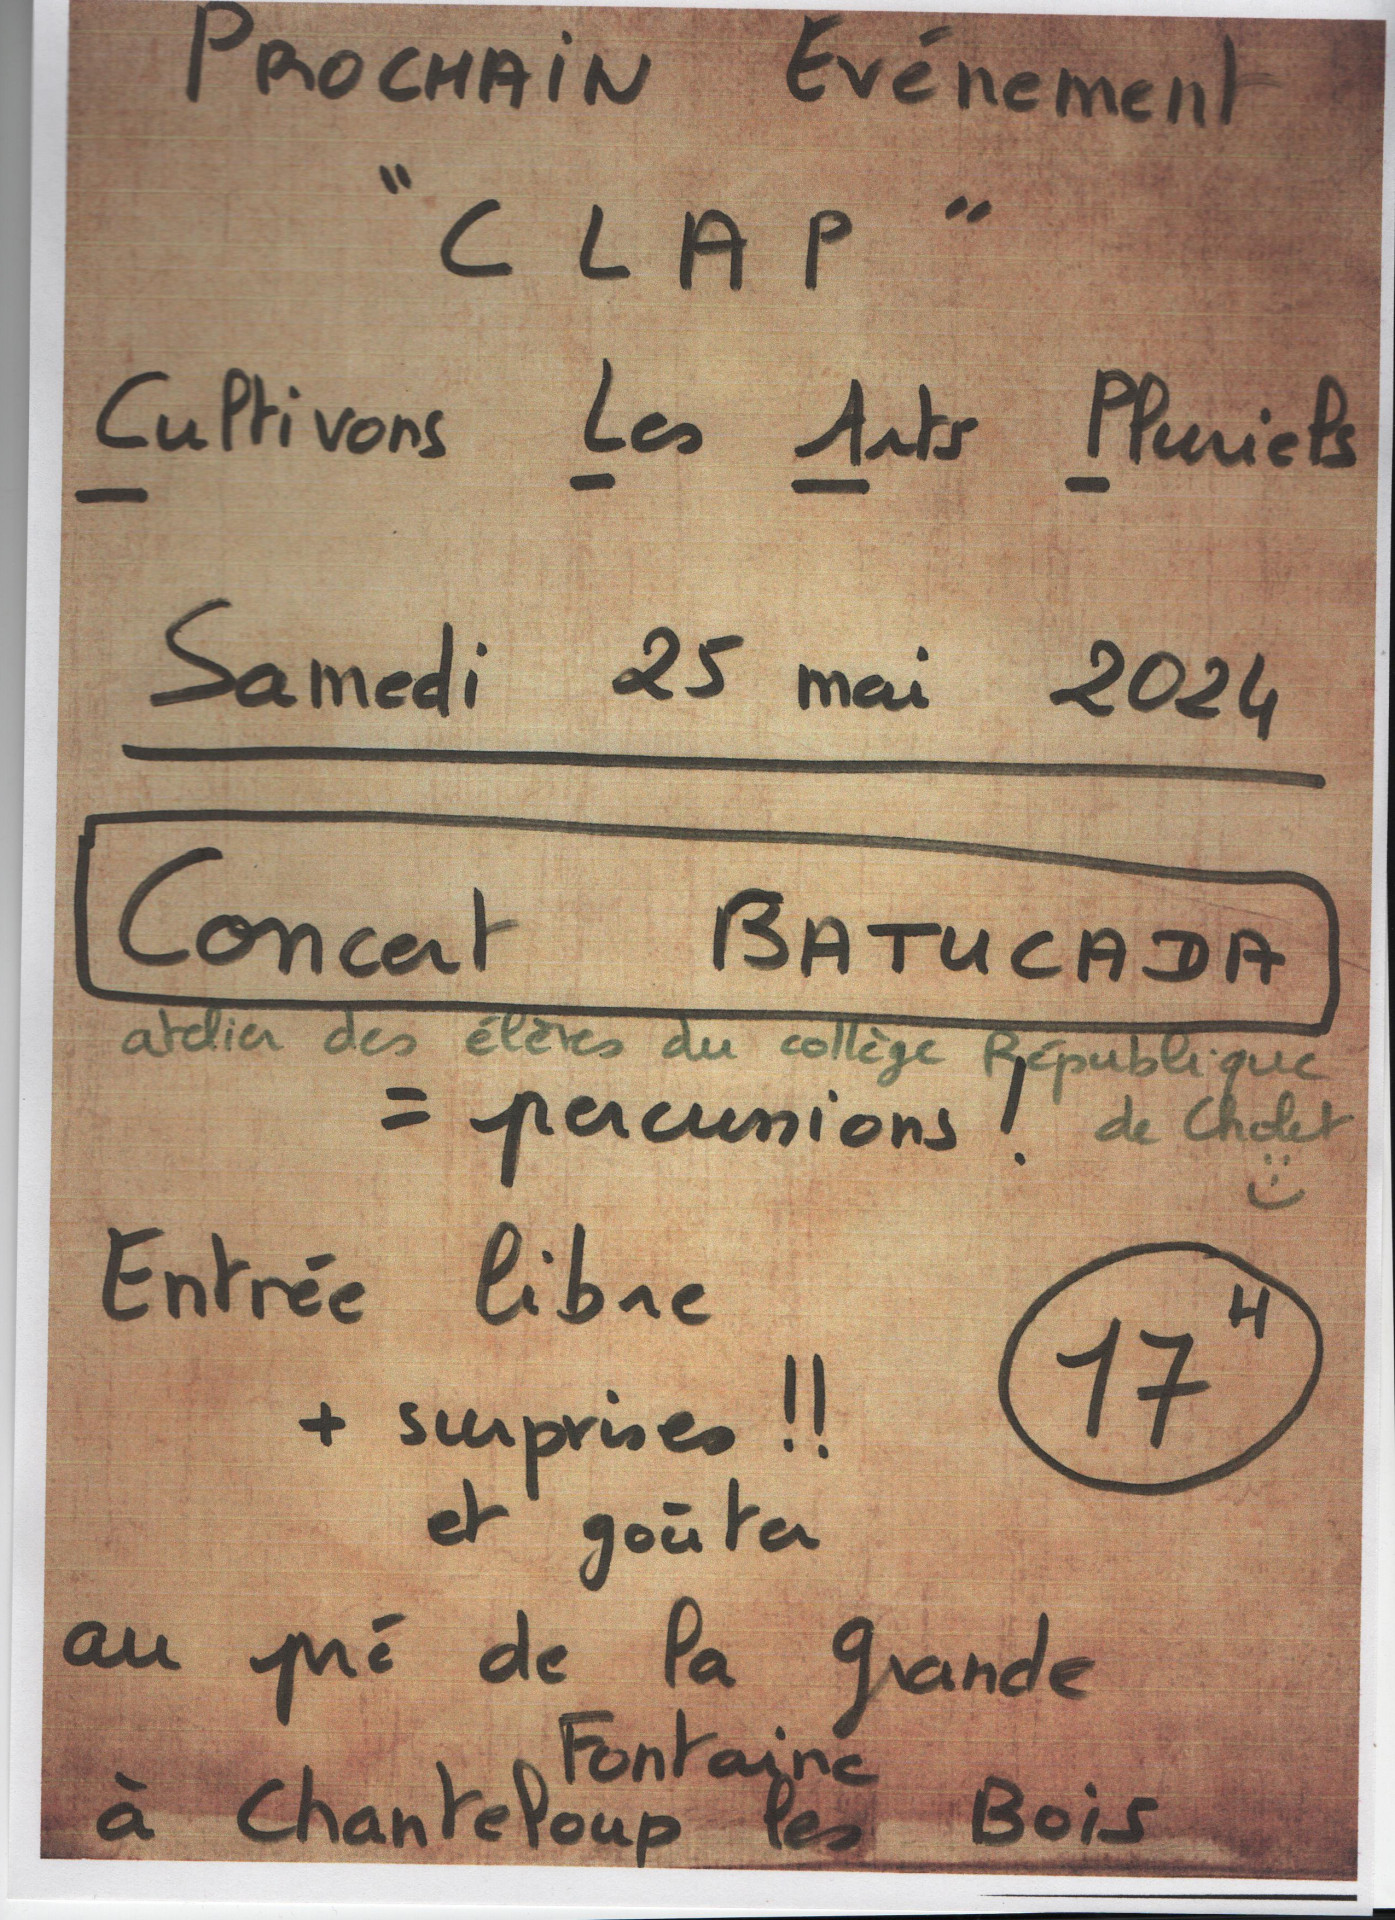 PROCHAIN Evénement
"CLAP"
Cultivons Les Arts Pluriels
Samedi 25 mai 2024
Concert BATUCADA
atelier des élèves du collège République
de Cholet
= percussions !
Entrée libre
17H
+ surprises !!
et goûter
au pré de la grande
Fontaine
à Chanteloup les Bois